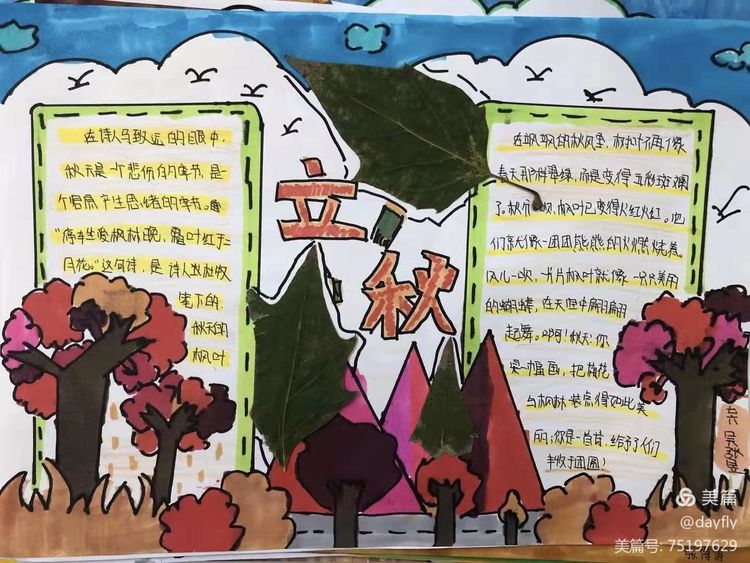 在诗人马致远的眼中,
秋天是一个悲伤的季节,是
个容易产生思绪的季节。
"停车坐爱枫林晚,霜叶红于二
月花。"这句诗,是诗人杜牧
笔下的
秋天的
枫叶
立秋
在飒飒的秋风里,树叶不再像
春天那样翠绿,而是变得五彩斑斓
了。枫叶已变得火红火红。它
们就像一团团熊熊的火燃烧着。
风儿一吹,片片枫叶就像一只只美丽
的蝴蝶,在天空中翩翩
起舞。啊!秋天:你
是一幅画,把
枫林装点得如此美
丽;你是一首,给予了人们
丰收团圆!
美篇
@dayfly
美篇号: 75197629